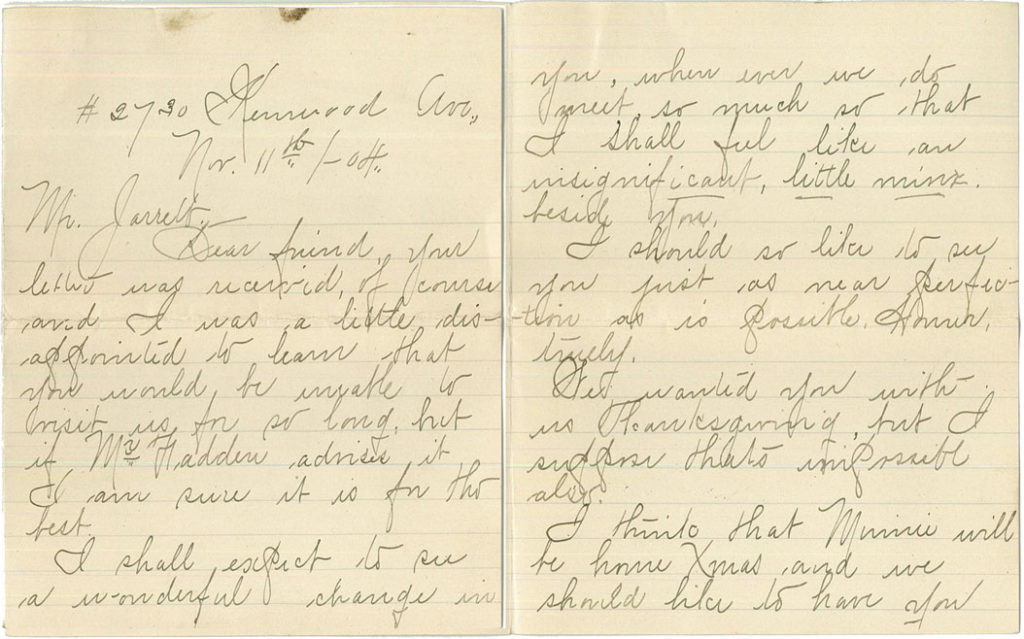 # 2730 Kenwood Ave.,
Nov. 11th /-04.
Mr. Jarrett.
Dear friend, your
letter was received, of course
and I was a little dis-
appointed to learn that
you would be unable to
visit us for so long, but
if Mrs Fadden advises it
I am sure it is for the
best.
I shall expect to see
a wonderful change in
you, when ever we do
meet, so much so that
I shall feel like an
insignificant, little minx.
beside you.
I should so like to see
you just as near perfec-
tion as is possible. Homer,
truely.
We wanted you with
us Thanksgiving, but I
suppose thats impossible
also.
I think that Minnie will
be home Xmas and we
should like to have you